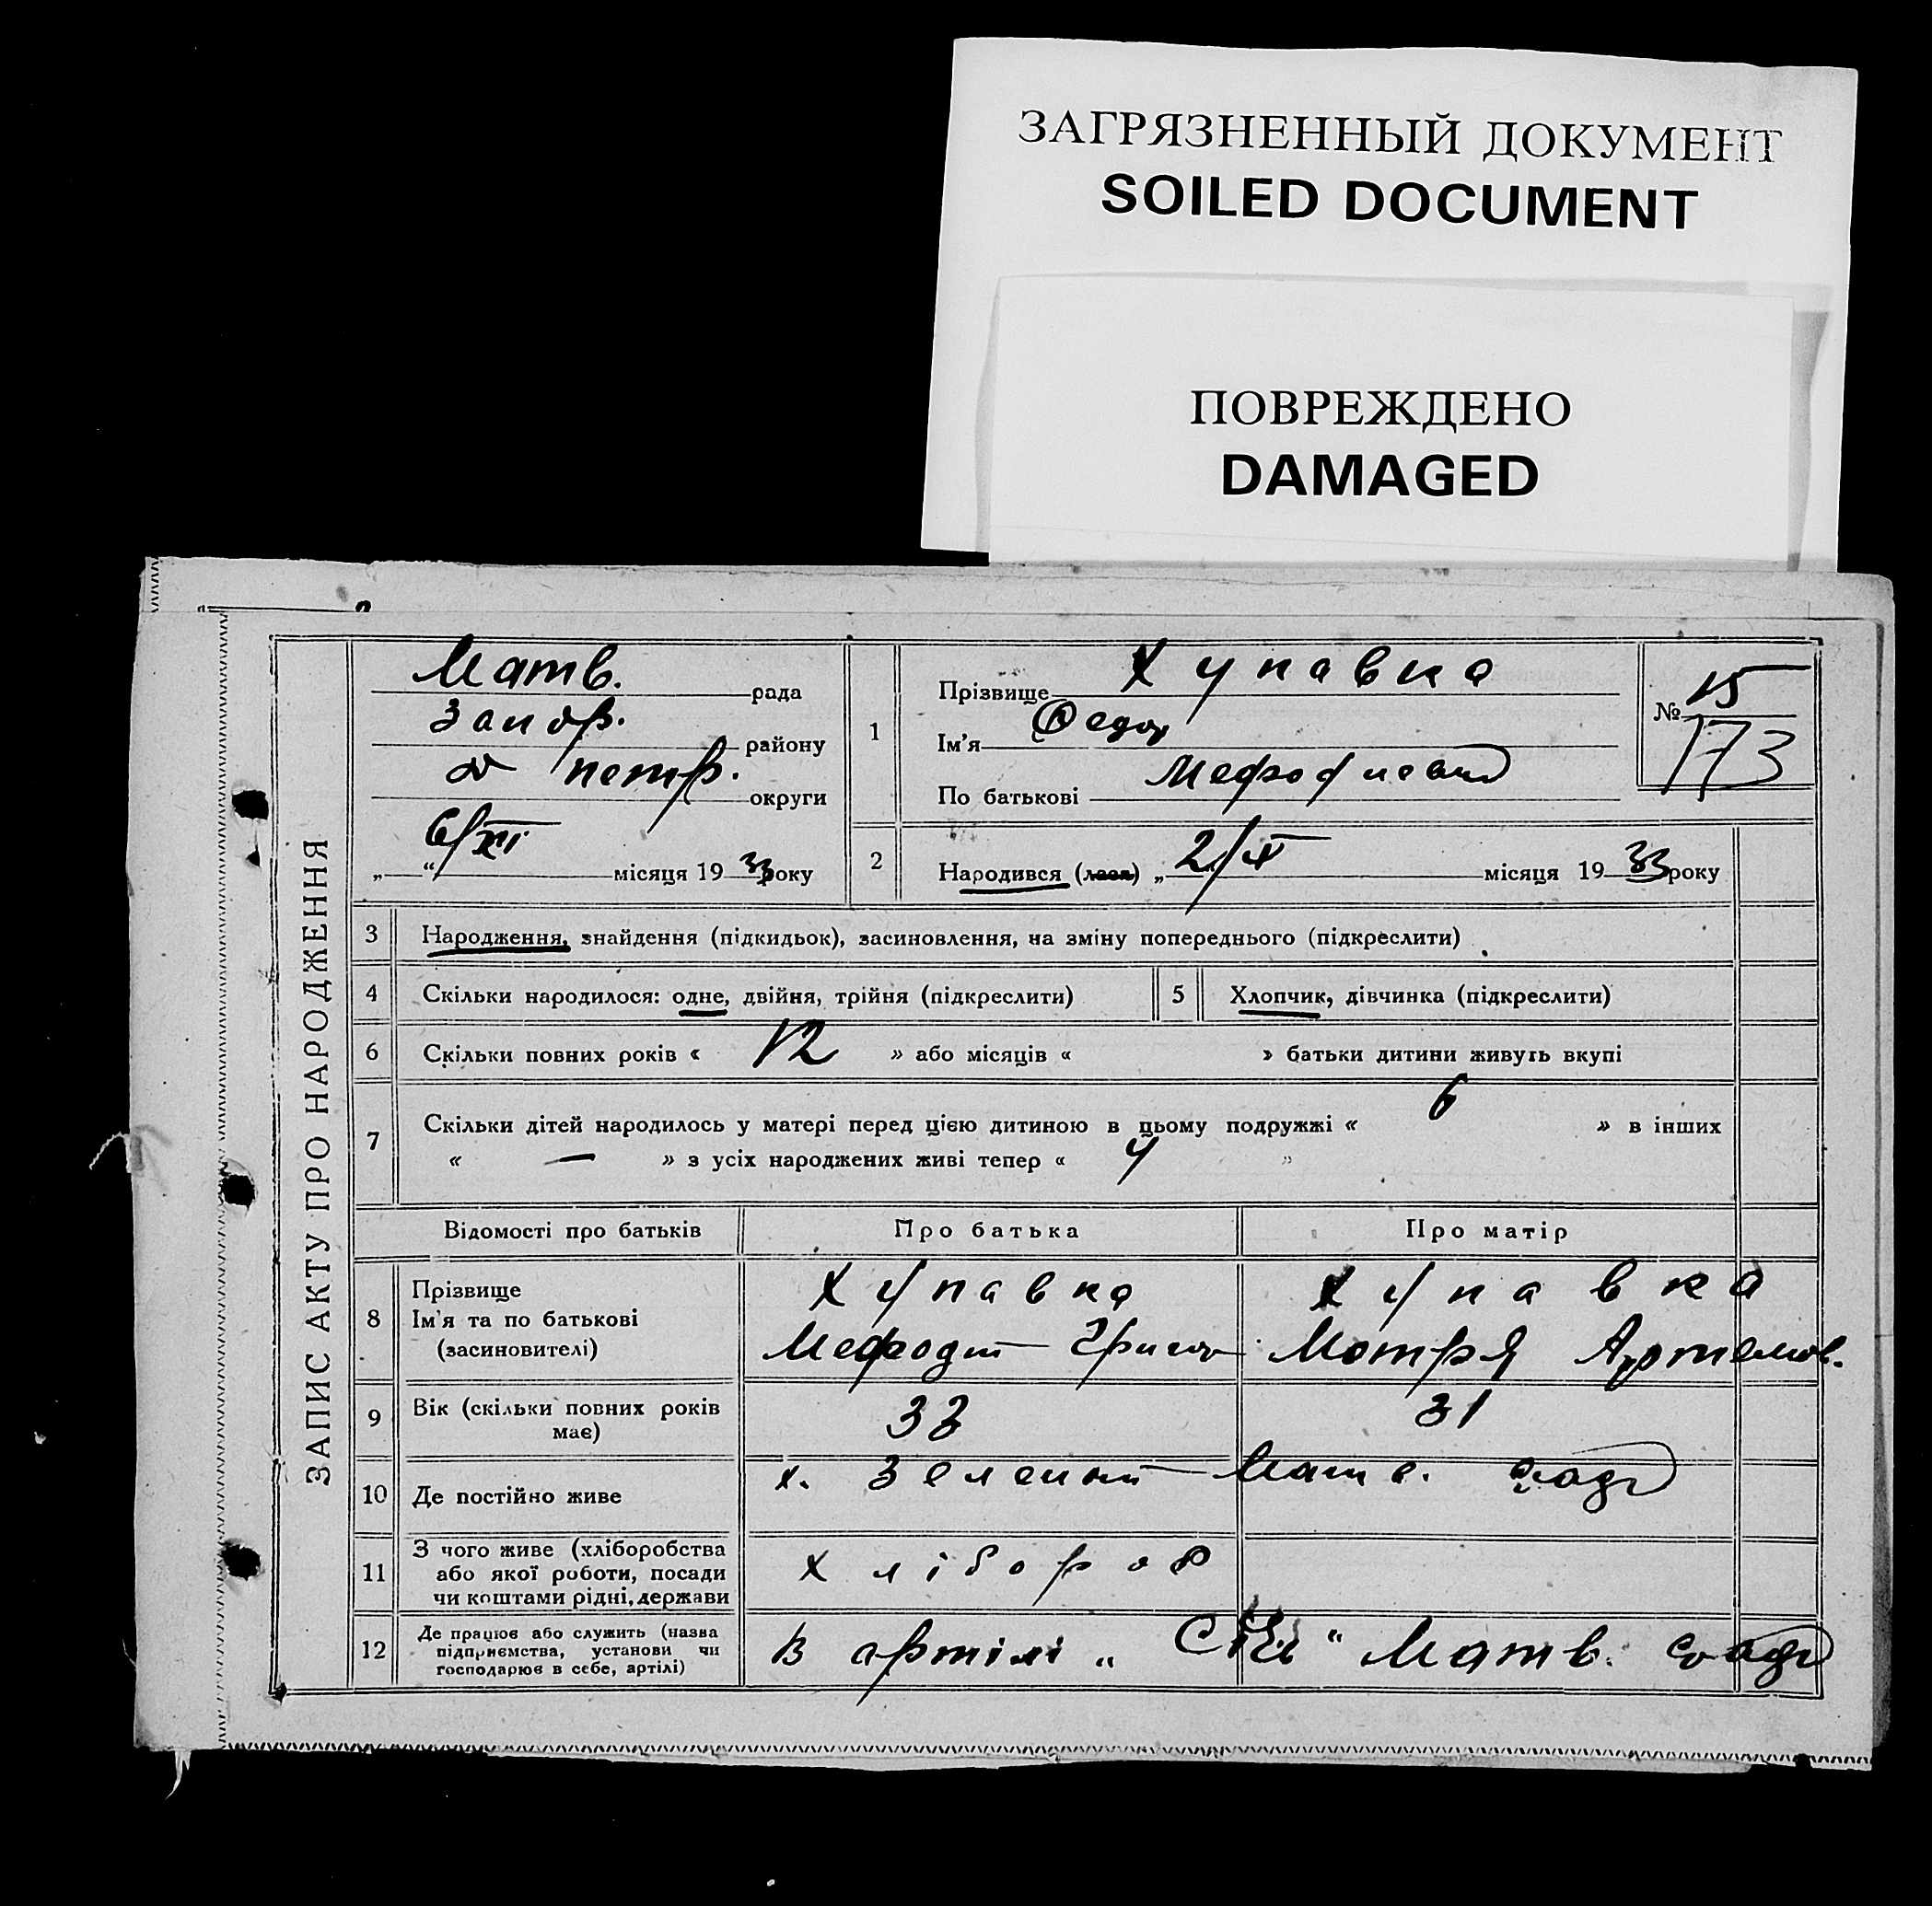 ЗАГРЯЗНЕННЫЙ ДОКУМЕНТ
SOILED DOCUMENT
ПОВРЕЖДЕНО
DAMAGED
ЗАПИС АКТУ ПРО НАРОДЖЕННЯ
Матв. рада
Запор. району
Д петр. округи
„ 6/XI “ місяця 19 33 року
1
Прізвище Хупавка
Ім'я Федор
По батькові
№ 15
173
2
Народився (лася) „ 2/X місяця 19 33 року
3 Народження, знайдення (підкидьок), засиновлення, на зміну попереднього (підкреслити)
4 Скільки народилося: одне, двійня, трійня (підкреслити) 5 Хлопчик, дівчинка (підкреслити)
6 Скільки повних років « 12 » або місяців « » батьки дитини живуть вкупі
7 Скільки дітей народилось у матері перед цією дитиною в цьому подружжі « 6 » в інших
« — » з усіх народжених живі тепер « 4 »
Відомості про батьків Про батька Про матір
8 Прізвище Хупавка Хупавка
Ім'я та по батькові Мефодій Григор Мотря Артемов.
(засиновителі)
9 Вік (скільки повних років має) 33 31
10 Де постійно живе х. Зелений Матв. ради
11 З чого живе (хліборобства
або якої роботи, посади
чи коштами рідні, держави хлібороб
12 Де працює або служить (назва
підприємства, установи чи
господарює в себе, артілі) В артілі „ “ Матв. ради